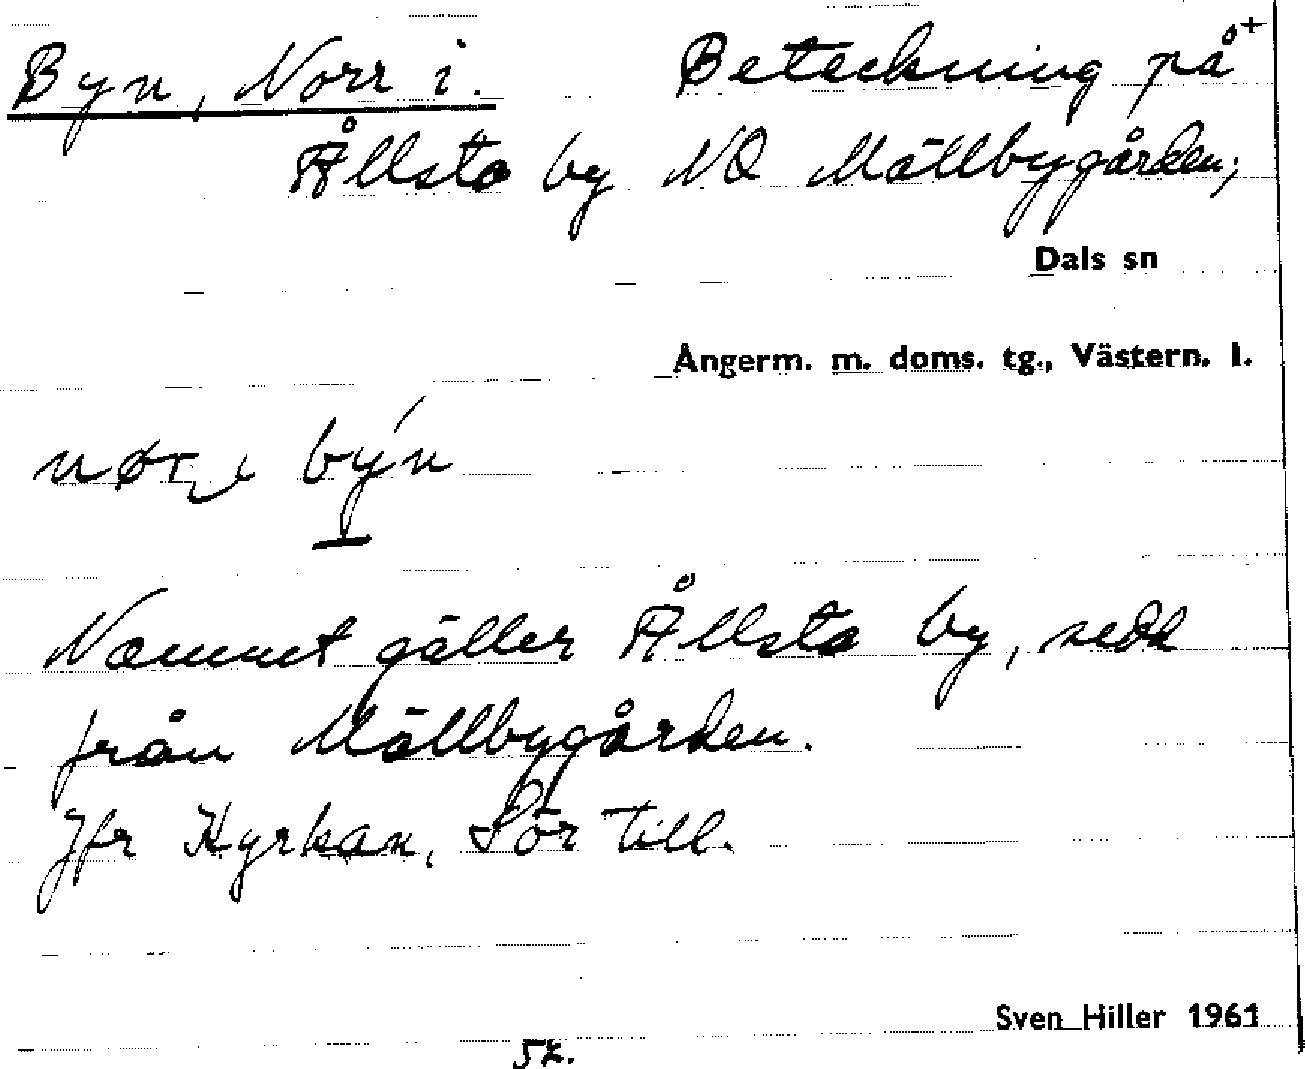 Byn, Norr i. Beteckning på +
Ållsta by NO Mällbygården;
Dals sn
Ångerm. m. doms. tg., Västern. l.
by´n
Namnet gäller Ållsta by, sedd
från Mällbygården.
Jfr Kyrkan, Sör till.
Sven Hiller 1961